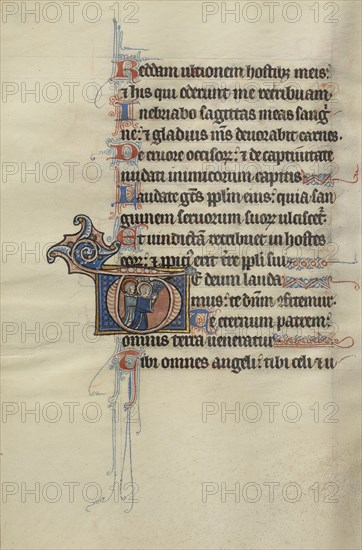 Reddam ultionem hostib; meis:
& hiis qui oderunt me retribuam.
Inebriabo sagittas meas sangi
ne: & gladius m̄s devorabit carnes.
De cruore occisor: & de captivitate
nudati inimicorum capitis
Laudate gentes pplm eius: quia san
guinem servorum suor ulciscet.
Et vindictam retribuet in hostes
eor: & ppicius erit t̄re ppli sui
Te deum lauda
mus: te dn̄m confitemur.
Te eternum patrem:
omnis terra veneratur
Tibi omnes angeli: tibi celi & u